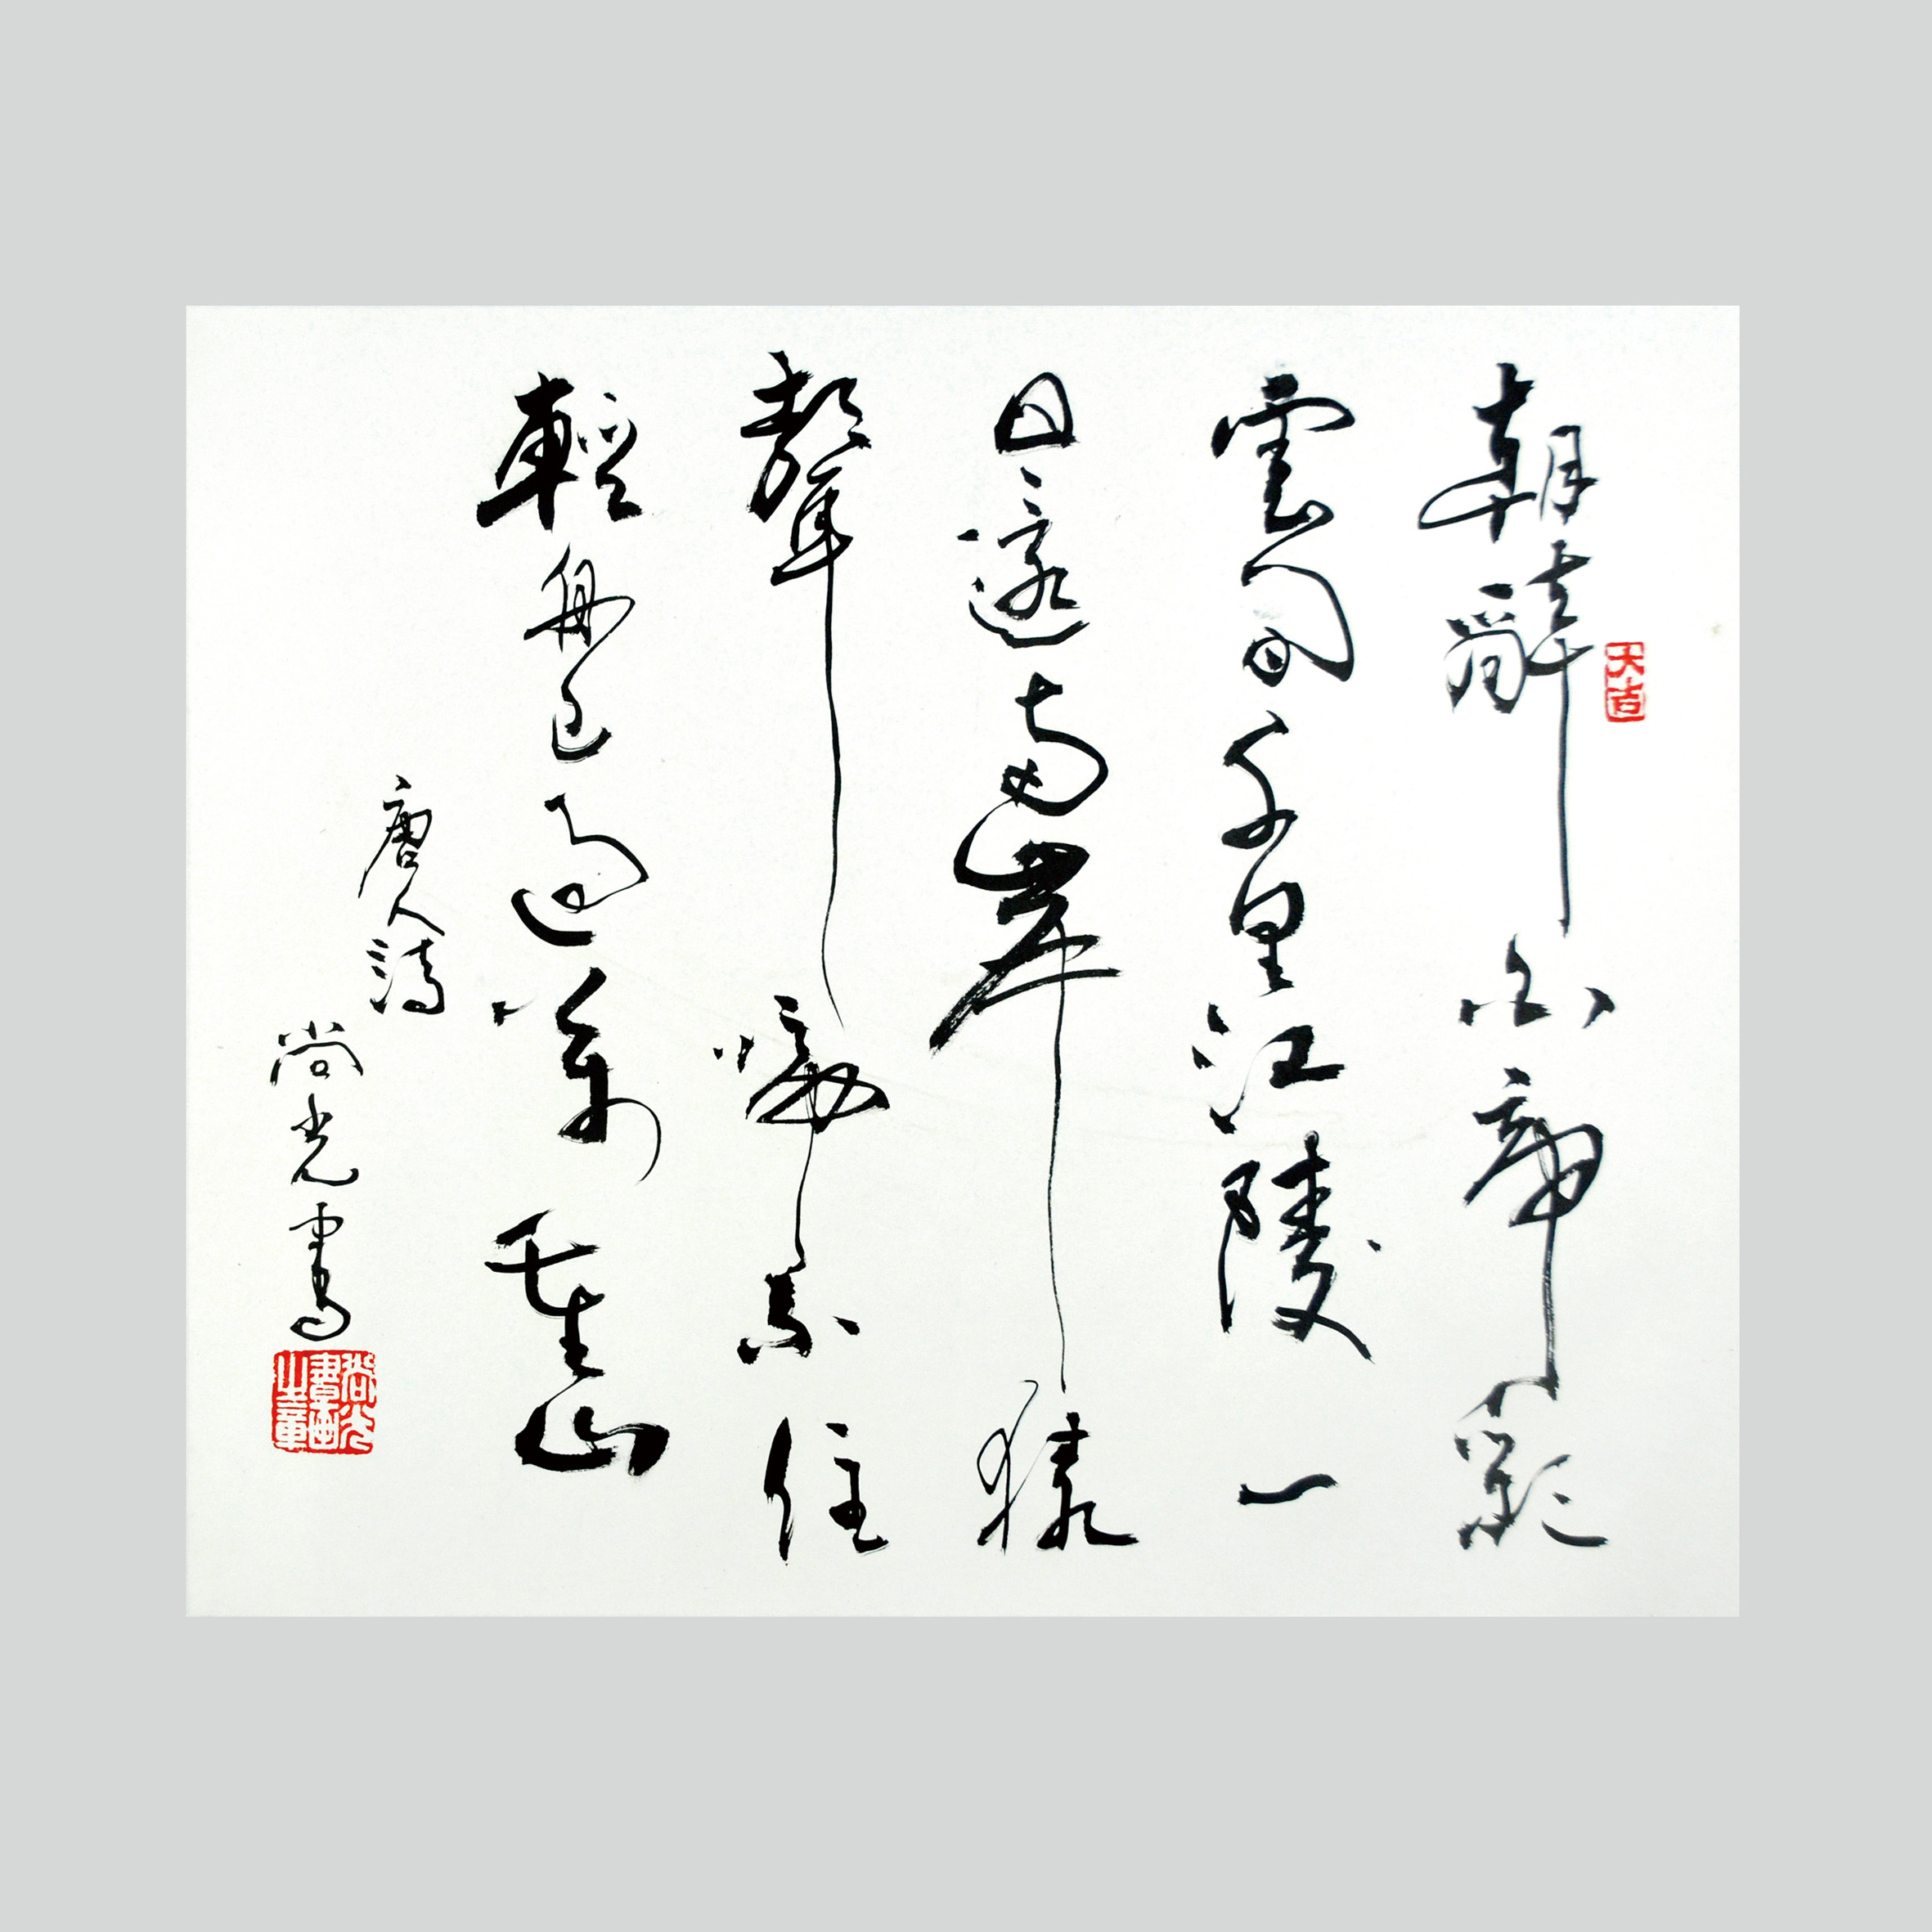 朝辭白帝彩
雲間千里江陵一
日還兩岸猿
聲啼不住
輕舟已過萬重山
唐人詩
尚光書
大吉
尚光書畫之章